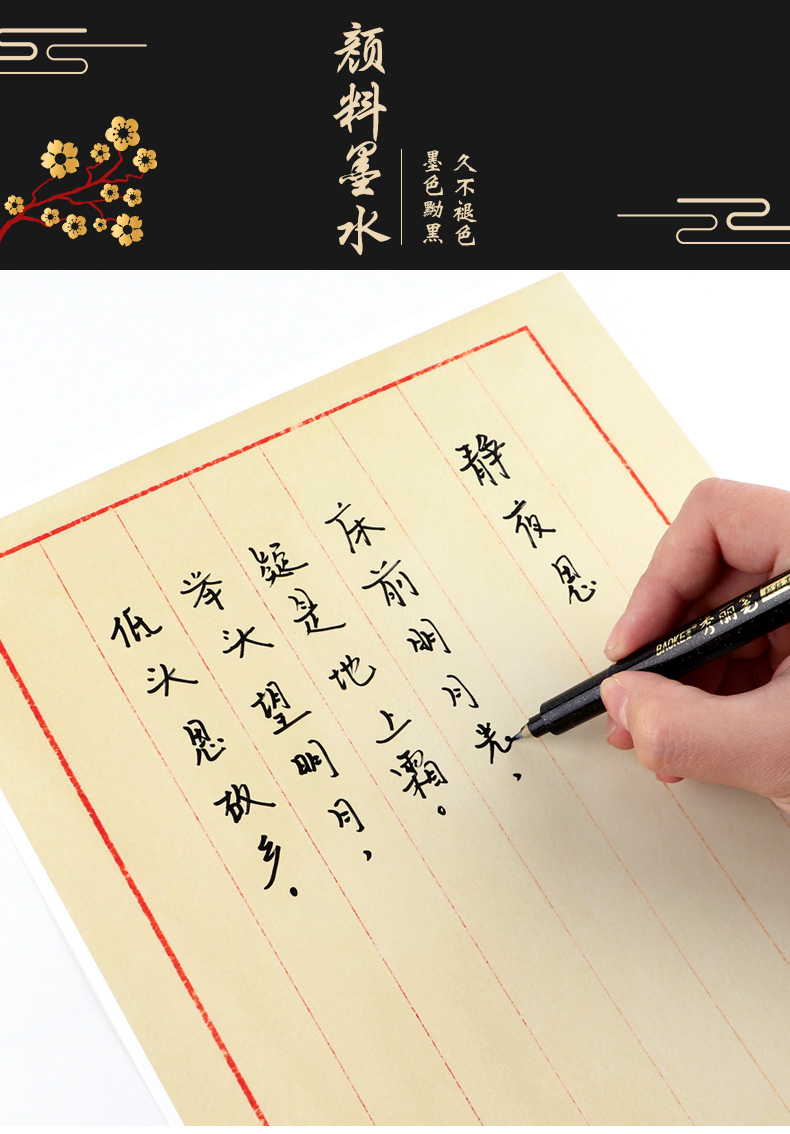 颜料墨水
久不褪色
墨色黝黑
静夜思
床前明月光，
疑是地上霜。
举头望明月，
低头思故乡。
BAOKE 秀丽笔